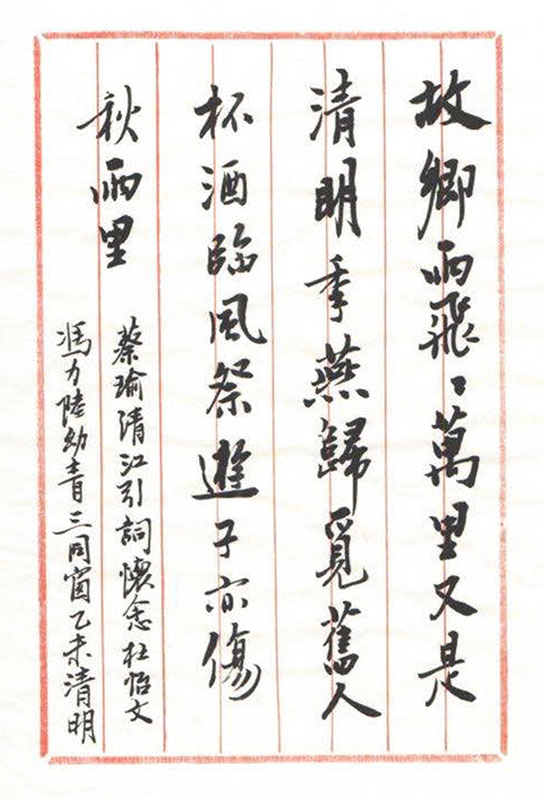 故鄉雨飛〻萬里又是
清明季燕歸覓舊人
杯酒臨風祭遊子亦傷
秋雨里
蔡瑜清江引詞懷念杜怡文
馮力陸幼青三同窗乙未清明